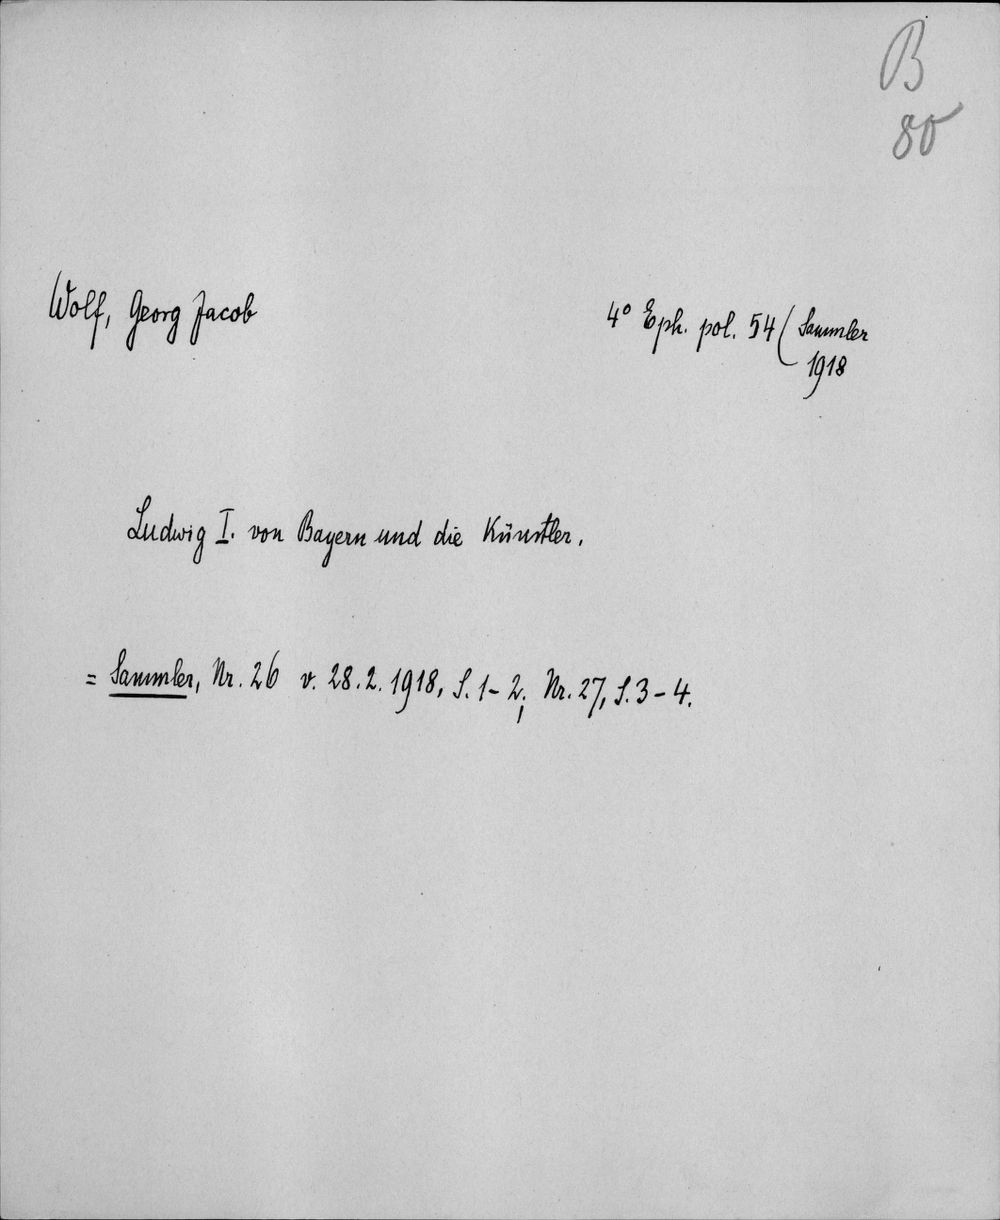 B
80
Wolf, Georg Jacob
4° Eph. pol. 54 ( Sammler
1918
Ludwig I. von Bayern und die Künstler.
= Sammler, Nr. 26 v. 28.2.1918, S. 1-2; Nr. 27, S. 3-4.